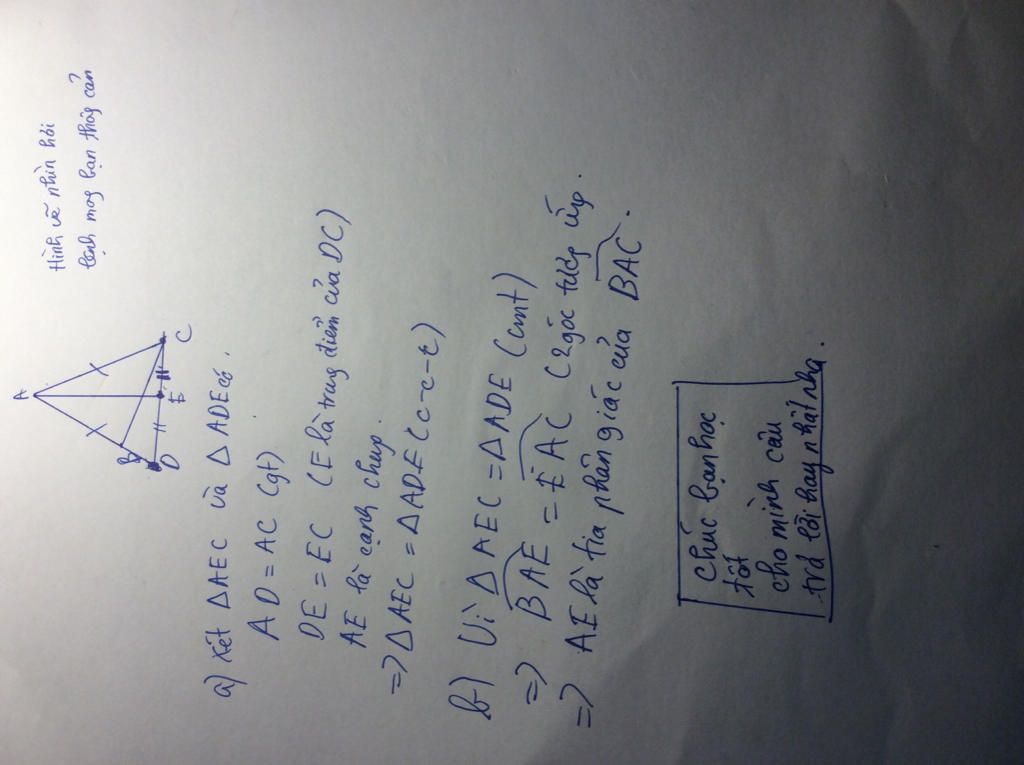 Hình vẽ nhìn hơi
lạnh mog bạn thôg cảm
A
B
D
E
C
a) Xét ΔAEC và ΔADE có.
AD = AC (gt)
DE = EC (E là trung điểm của DC)
AE là cạnh chung.
=> ΔAEC = ΔADE (c-c-t)
b) Vì ΔAEC = ΔADE (cmt)
=> BAE = EAC (2 góc tươg ứg.
=> AE là tia phân giác của BAC.
Chúc bạn học
tốt
cho mình câu
trả lời hay nhất nha.